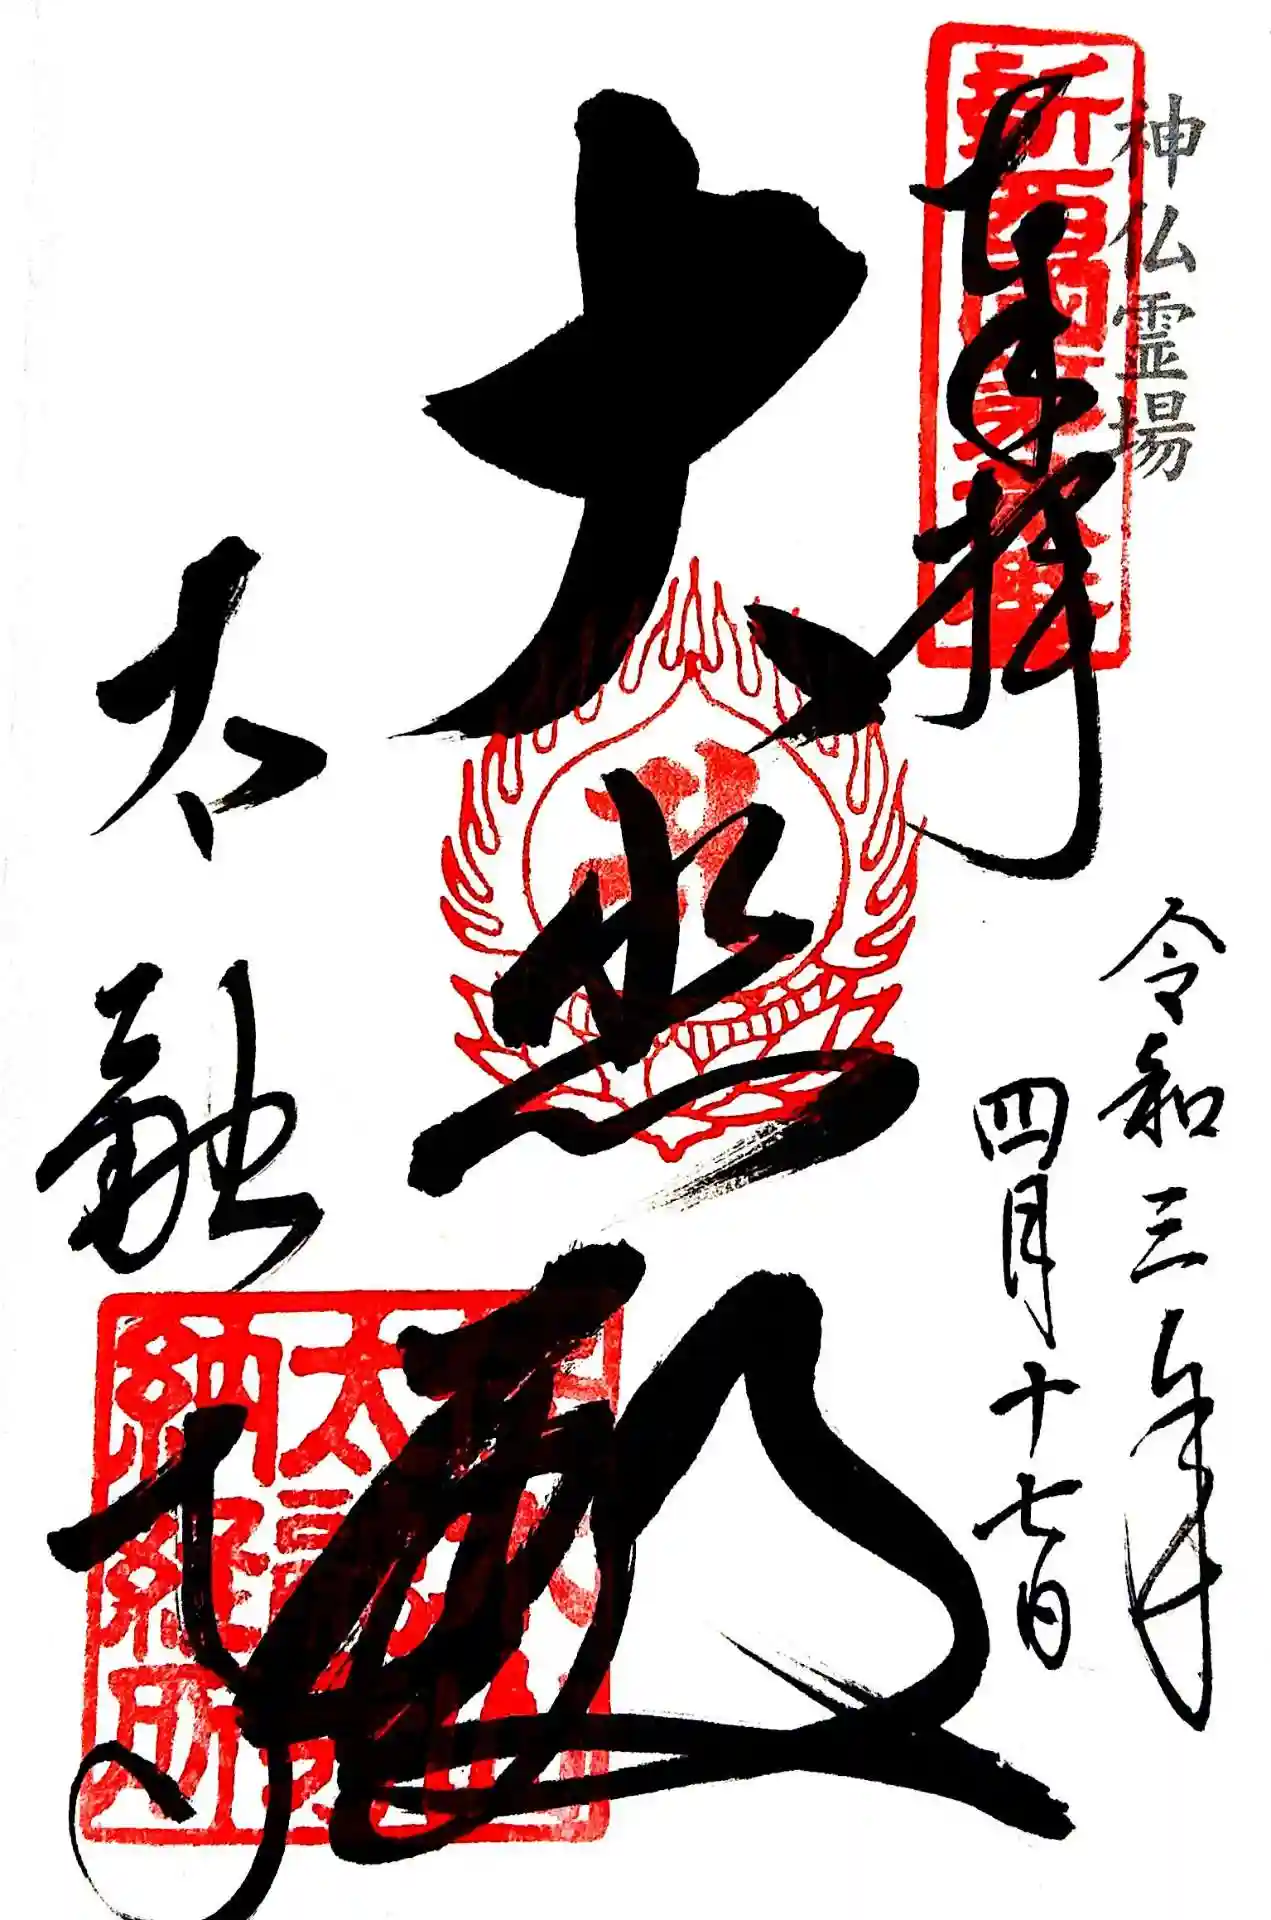 神仏霊場
新西国
奉拝
令和三年
四月十七日
大悲殿
太融寺
太融寺
納経所